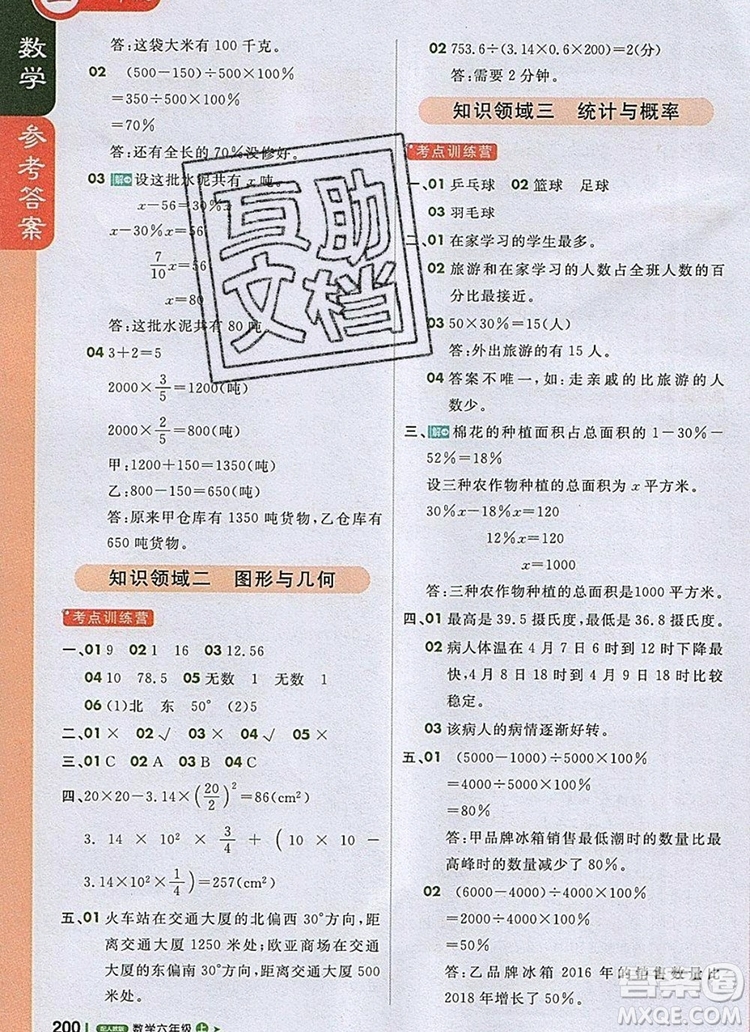 数学
参考答案
答:这袋大米有 100 千克。
02 (500-150)÷500×100%
=350÷500×100%
=70%
答:还有全长的 70%没修好。
03 解 设这批水泥共有 x 吨。
x-56=30%x
x-30%x=56
7/10 x=56
x=80
答:这批水泥共有 80 吨。
04 3+2=5
2000×3/5=1200(吨)
2000×2/5=800(吨)
甲:1200+150=1350(吨)
乙:800-150=650(吨)
答:原来甲仓库有 1350 吨货物,乙仓库有
650 吨货物。
知识领域二 图形与几何
考点训练营
一、01 9 02 1 16 03 12.56
04 10 78.5 05 无数 1 无数 1
06 (1)北 东 50° (2)5
二、01 × 02 √ 03 × 04 √ 05 ×
三、01 C 02 A 03 B 04 C
四、20×20-3.14×(20/2)²=86(cm²)
3.14×10²×3/4+(10×10-
3.14×10²×1/4)=257(cm²)
五、01 火车站在交通大厦的北偏西 30°方向,
距离交通大厦 1250 米处;欧亚商场在交通
大厦的东偏南 30°方向,距离交通大厦 500
米处。
200 配人教版 数学六年级 上
02 753.6÷(3.14×0.6×200)=2(分)
答:需要 2 分钟。
知识领域三 统计与概率
考点训练营
一、01 乒乓球 02 篮球 足球
03 羽毛球
二、01 在家学习的学生最多。
02 旅游和在家学习的人数占全班人数的百
分比最接近。
03 50×30%=15(人)
答:外出旅游的学生有 15 人。
04 答案不唯一,如:走亲戚的比旅游的人
数少。
三、解 棉花的种植面积占总面积的 1-30%-
52%=18%
设三种农作物种植的总面积为 x 平方米。
30%x-18%x=120
12%x=120
x=1000
答:三种农作物种植的总面积是1000 平方米。
四、01 最高是 39.5 摄氏度,最低是 36.8 摄氏度。
02 病人体温在 4 月 7 日 6 时到 12 时下降最
快,4 月 8 日 18 时到 4 月 9 日 18 时比较
稳定。
03 该病人的病情逐渐好转。
五、01 (5000-1000)÷5000×100%
=4000÷5000×100%
=80%
答:甲品牌冰箱销售最低潮时的数量比最
高峰时的数量减少了 80%。
02 (6000-4000)÷4000×100%
=2000÷4000×100%
=50%
答:乙品牌冰箱 2016 年的销售数量比
2018 年增长了 50%。
互助
文档
作业帮答案
MXQE.COM